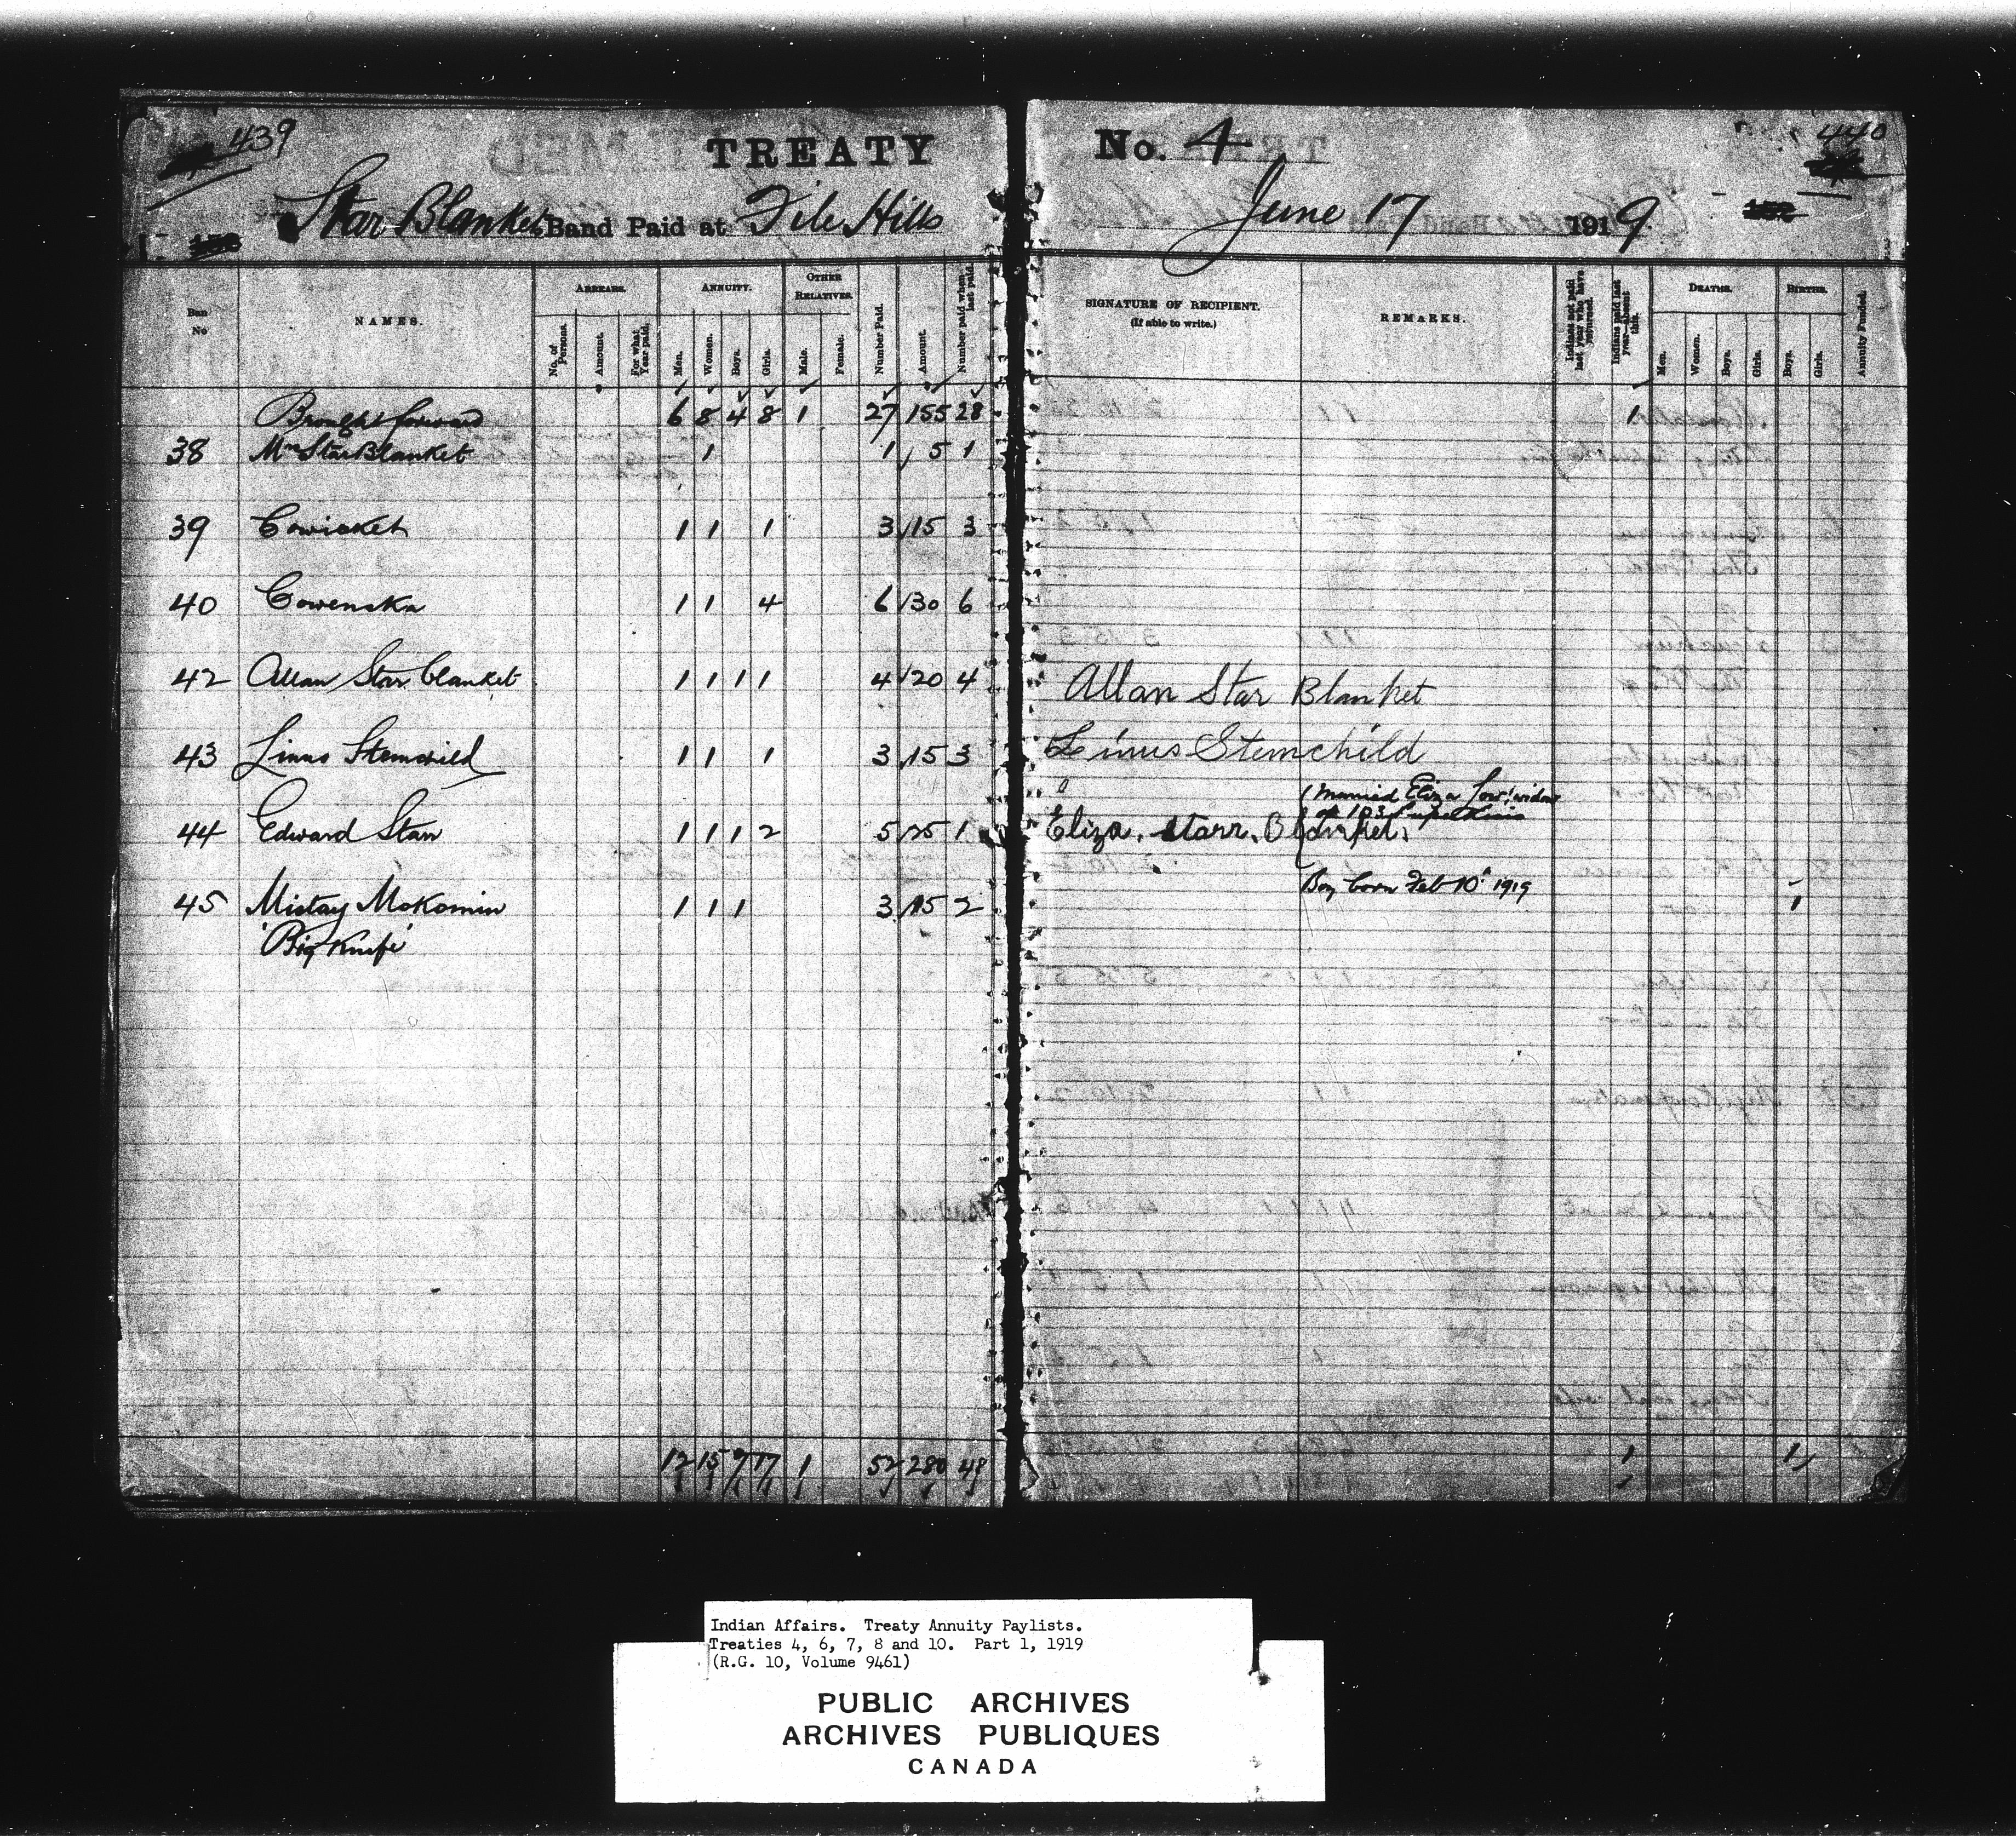 439
TREATY
Star Blanket Band Paid at File Hills
No. 4
440
June 17 1919.
Ban No
NAMES.
ARREARS.
No. of Persons.
Amount.
For what Year paid.
ANNUITY.
Men.
Women.
Boys.
Girls.
OTHER RELATIVES.
Male.
Female.
Number Paid.
Amount.
Number paid when last paid.
SIGNATURE OF RECIPIENT.
(If able to write.)
REMARKS.
Indians not paid last year who have returned.
Indians paid last year—absent this.
DEATHS.
Men.
Women.
Boys.
Girls.
BIRTHS.
Boys.
Girls.
Annuity Funded.
Brought forward 6 8 4 8 1 27 155 28 1
38 Mrs Star Blanket 1 1 5 1
39 Cowicket 1 1 1 3 15 3
40 Cowenska 1 1 4 6 30 6
42 Allan Star blanket 1 1 1 1 4 20 4 Allan Star Blanket
43 Linus Stemchild 1 1 1 3 15 3 Linus Stemchild
Married Eliza widow
of 103
44 Edward Starr 1 1 1 2 5 25 1 Eliza. Starr. Blanket.
Boy born Feb 10th 1919
45 Mistay Mokomin 1 1 1 3 15 2 1
'Big Knife'
12 15 7 17 1 52 280 48 1 1
1
Indian Affairs. Treaty Annuity Paylists.
Treaties 4, 6, 7, 8 and 10. Part 1, 1919
(R.G. 10, Volume 9461)
PUBLIC ARCHIVES
ARCHIVES PUBLIQUES
CANADA